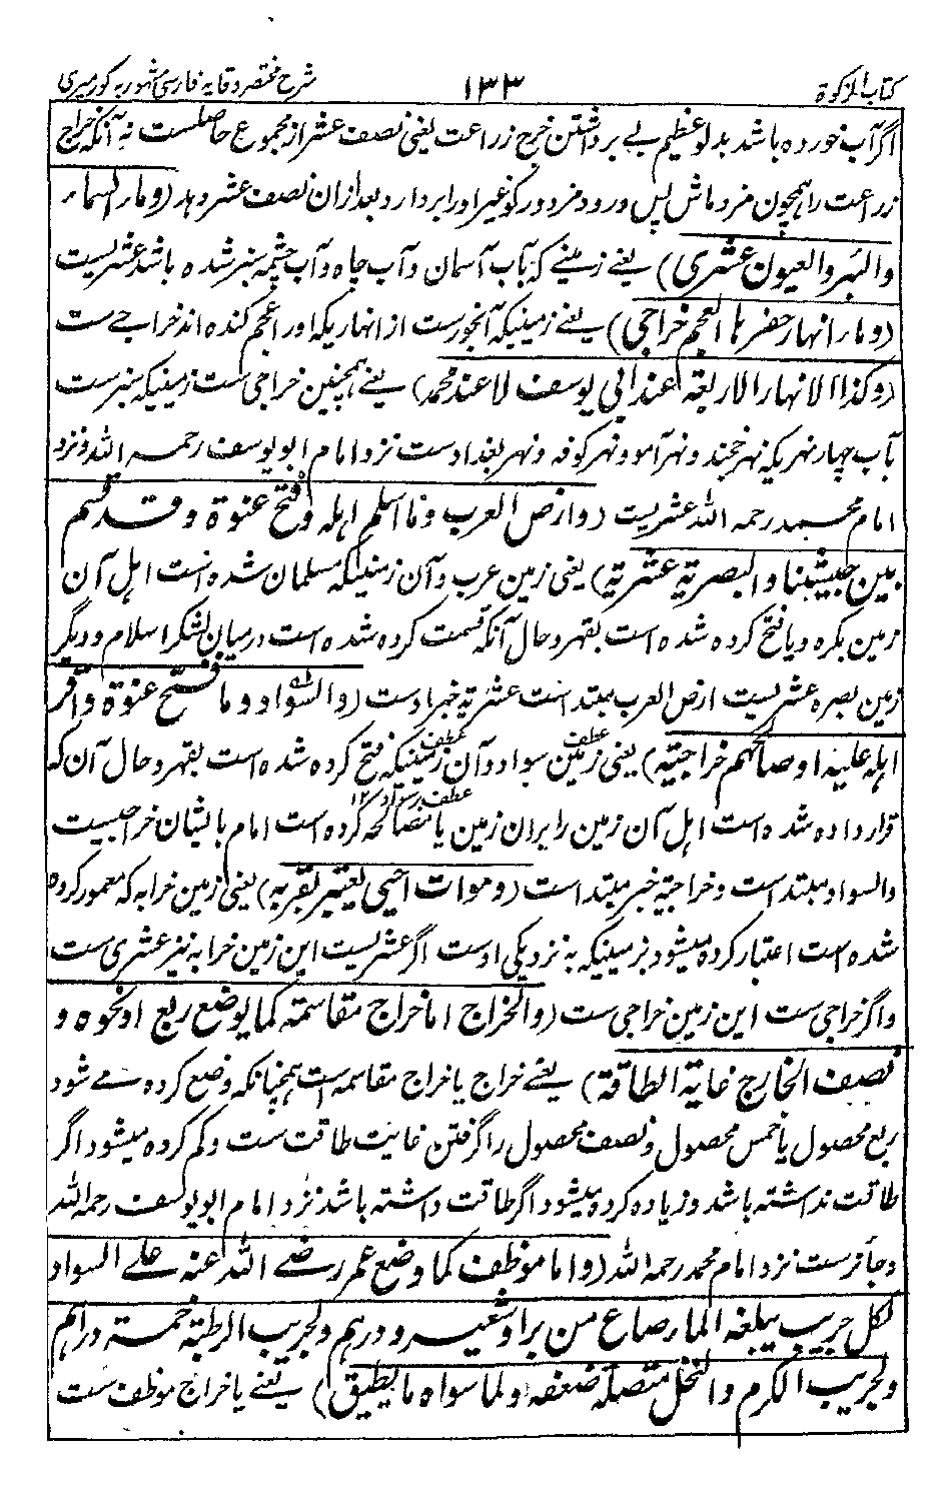 کتاب الزکوة ۱۳۳ شرح مختصر وقایه فارسی مشهور به کورمیری
اگر آب خورده باشد بدلو عظیم بے برداشتن خرج زراعت یعنی نصف عشر از مجموع حاصلست نه آنکه خراج
زراعت را همچون مزد ماش پس ورود مزدور کو غیر اورا بردارد بعد ازان نصف عشر دهد (وماء السماء
والبئر والعیون عشری) یعنے زمینے که بآب آسمان وآب چاه وآب چشمه سبز شده باشد عشریست
(وماء انهار حفرها العجم خراجی) یعنے زمینیکه آنجورست از انهاریکه اورا عجم کنده اند خراجے ست
(وکذا الانهار الاربعة عند ابی یوسف لا عند محمد) یعنے همچنین خراجی ست زمینیکه سبزست
بآب چهار نهر یکه نهر خجند ونهر آمو ونهر کوفه ونهر بغدادست نزد امام ابو یوسف رحمه الله ونزد
امام محمد رحمه الله عشریست (وارض العرب وما اسلم اهله وفتح عنوة وقد قسم
بین جیشنا والبصریة عشریة) یعنی زمین عرب وآن زمینیکه مسلمان شده است اهل آن
زمین بکره ویا فتح کرده شده است بقهر وحال آنکه قسمت کرده شده است درمیان لشکر اسلام ودیگر
زمین بصره عشریست ارض العرب مبتداست عشریة خبر اوست (والسواد وما فتح عنوة واقر
اهله علیه او صالحهم خراجیة) یعنی زمین سواد وآن زمینیکه فتح کرده شده است بقهر وحال آن که
عطف عطف
قرار داده شده است اهل آن زمین را بران زمین یا مصالحه کرده است امام بایشان خراجیست
عطف بر سواد ۱۲
والسواد مبتداست وخراجیة خبر مبتداست (وموات احیی یعتبر بقربه) یعنی زمین خرابه که معمور کرده
شده است اعتبار کرده میشود بزمینیکه به نزدیکی اوست اگر عشریست این زمین خرابه نیز عشری ست
واگر خراجی ست این زمین خراجی ست (والخراج اما خراج مقاسمة کما یوضع ربع او نحوه و
نصیف الخارج غایة الطاقة) یعنے خراج یا خراج مقاسمه است همچنانکه وضع کرده مے شود
ربع محصول یا خمس محصول ونصف محصول را گرفتن غایت طاقت ست وکم کرده میشود اگر
طاقت نداشته باشد وزیاده کرده میشود اگر طاقت داشته باشد نزد امام ابو یوسف رحمه الله
وجائزست نزد امام محمد رحمه الله (واما موظف کما وضع عمر رضے الله عنه علے السواد
لکل جریب یبلغه الماء صاع من بر او شعیر ودرهم ولجریب الرطبة خمسة دراهم
ولجریب الکرم والنخل متصلة ضعفه ولما سواه ما یطیق) یعنے یا خراج موظف ست